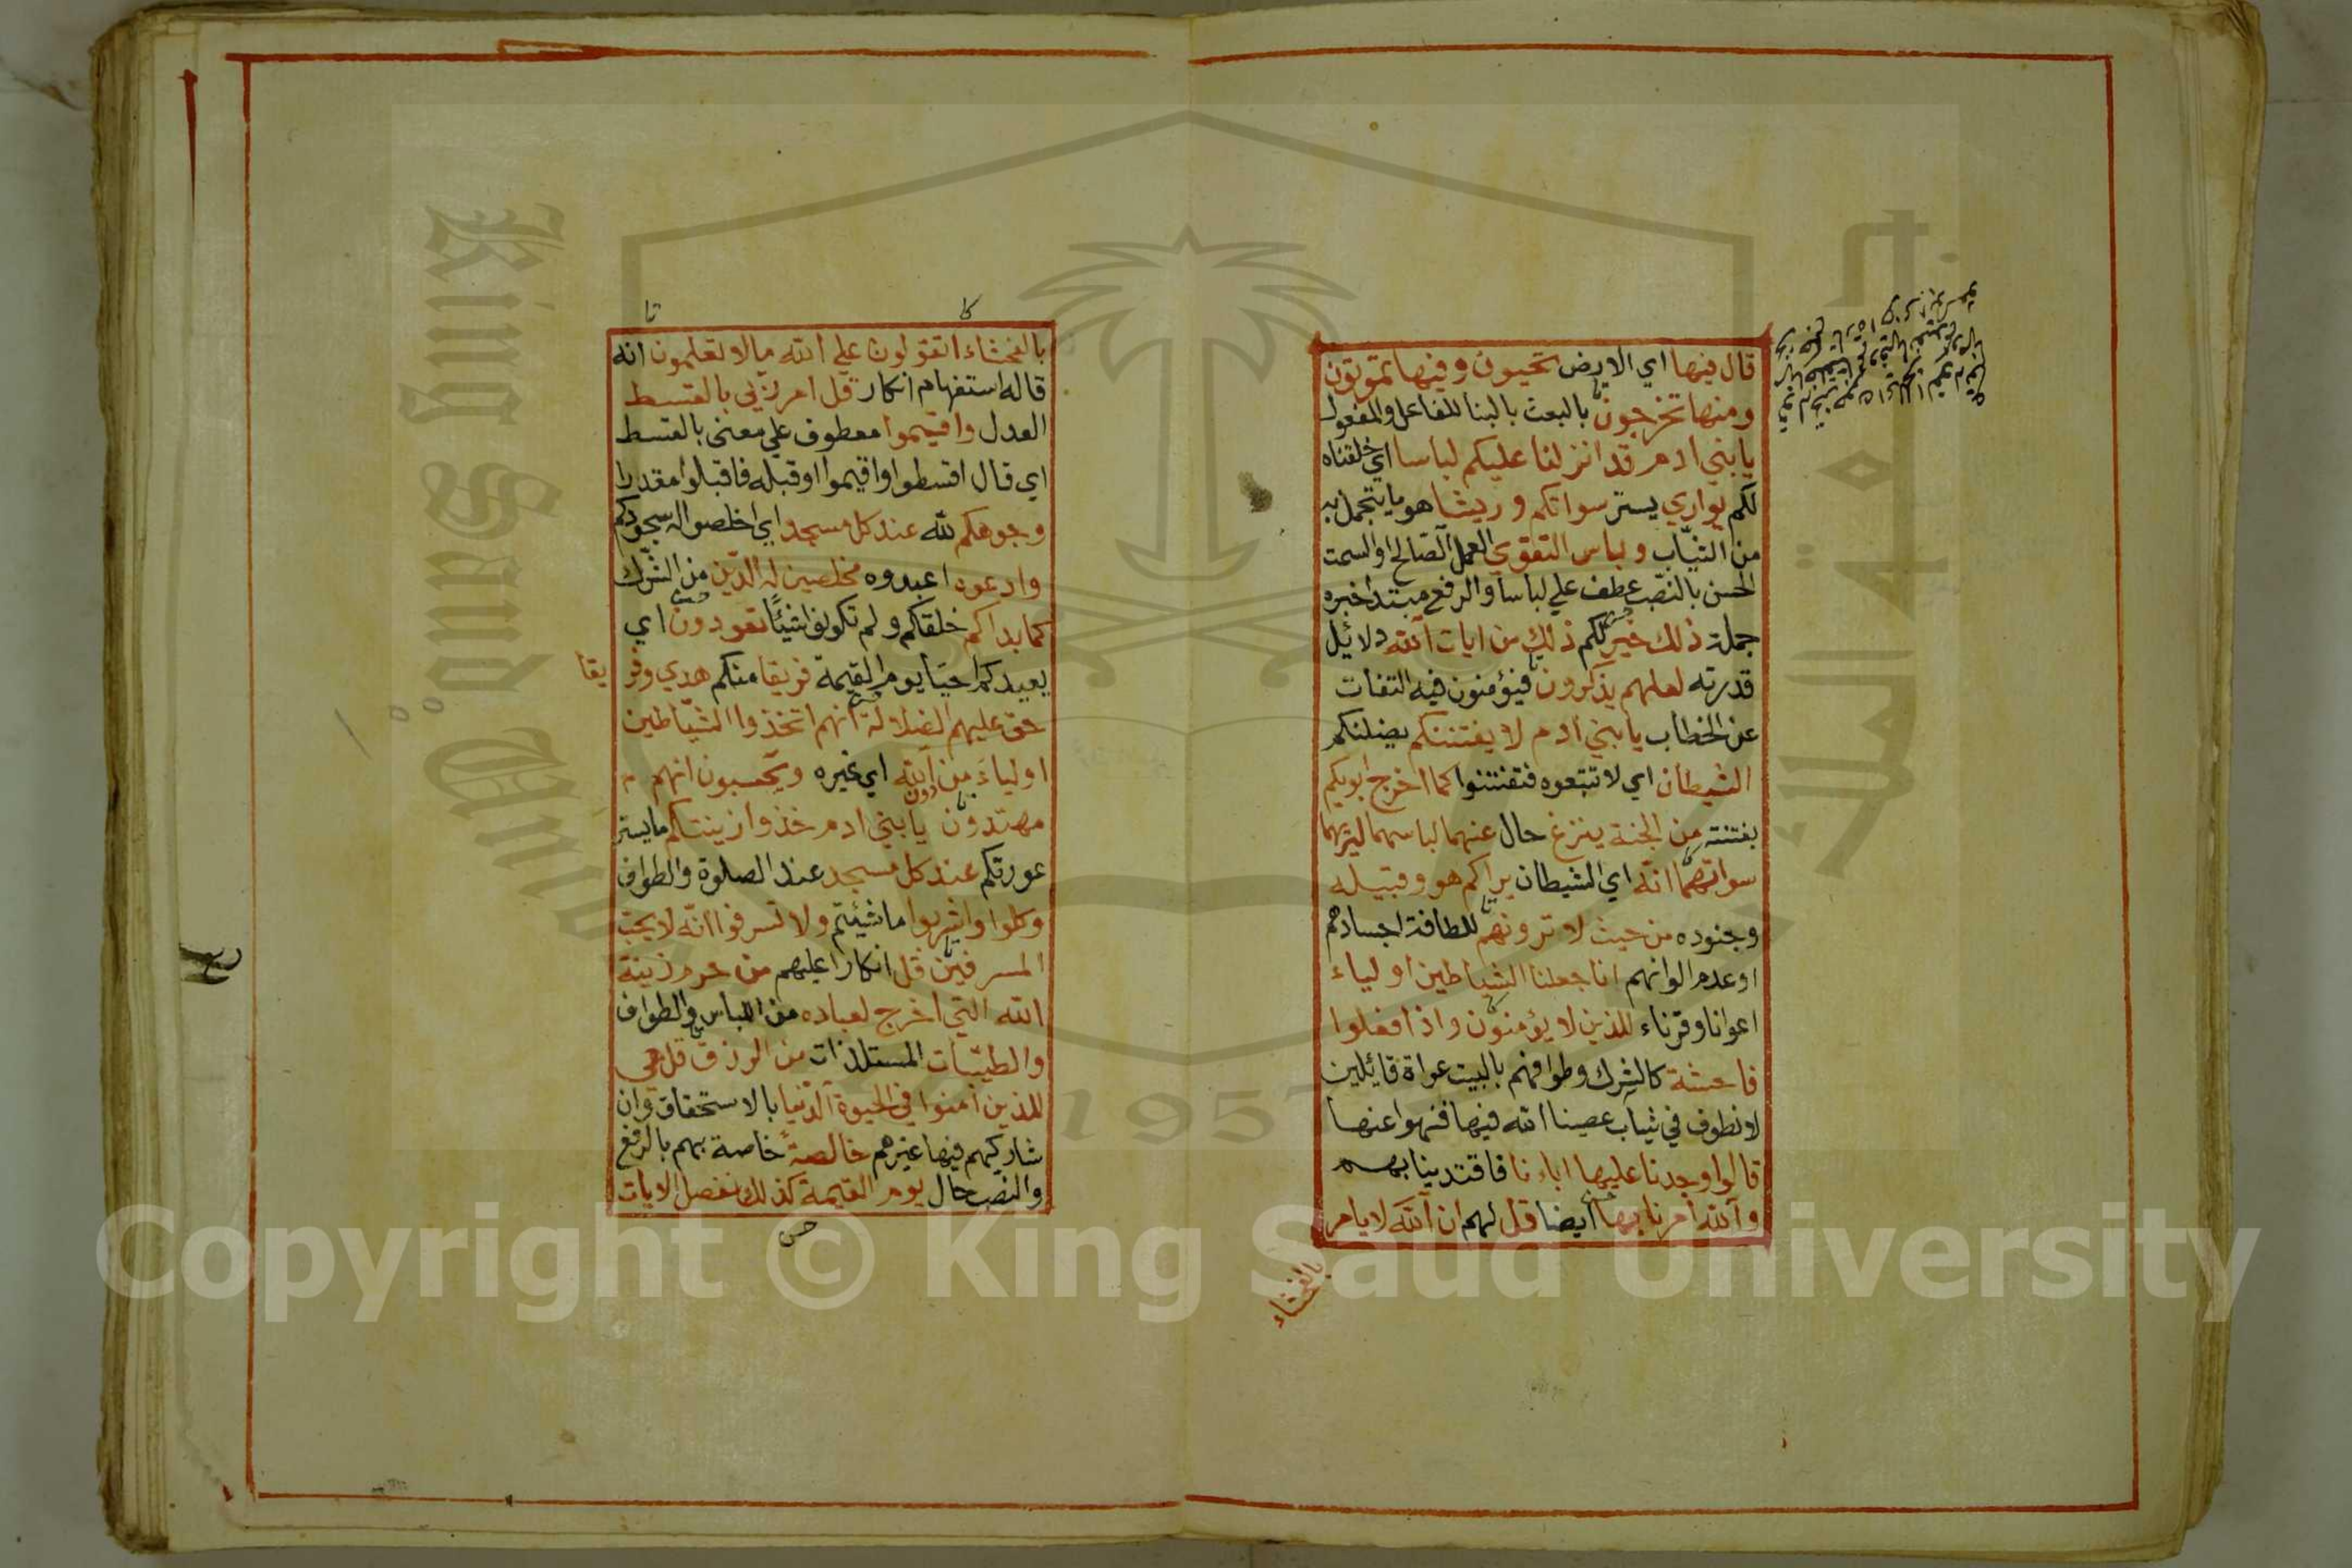 قال فيها اي الارض تحيون وفيها تموتون
ومنها تخرجون بالبعث بالبنا للفاعل والمفعول
يا بني ادم قد انزلنا عليكم لباسا اي خلقناه
لكم يواري يستر سواتكم وريشا هو ما يتجمل به
من الثياب ولباس التقوي العمل الصالح او السمت
الحسن بالنصب عطف علي لباسا والرفع مبتدا خبره
جملة ذلك خير لكم ذلك من ايات الله دلائل
قدرته لعلهم يذكرون فيؤمنون فيه التفات
عن الخطاب يا بني ادم لا يفتننكم يضلنكم
الشيطان اي لا تتبعوه فتفتتنوا كما اخرج ابويكم
بفتنته من الجنة ينزع حال عنهما لباسهما ليريهما
سواتهما انه اي الشيطان يراكم هو وقبيله
وجنوده من حيث لا ترونهم للطافة اجسادهم
او عدم الوانهم انا جعلنا الشياطين اولياء
اعوانا وقرناء للذين لا يؤمنون واذا فعلوا
فاحشة كالشرك وطوافهم بالبيت عراة قائلين
لا نطوف في ثياب عصينا الله فيها فنهوا عنها
قالوا وجدنا عليها اباءنا فاقتدينا بهم
والله امرنا بها ايضا قل لهم ان الله لا يامر
بالفحشاء
بالفحشاء اتقولون علي الله ما لا تعلمون انه
قاله استفهام انكار قل امر ربي بالقسط
العدل واقيموا معطوف علي معني بالقسط
اي قال اقسطوا واقيموا او قبله فاقبلوا مقدرا
وجوهكم لله عند كل مسجد اي اخلصوا له سجودكم
وادعوه اعبدوه مخلصين له الدين من الشرك
كما بداكم خلقكم ولم تكونوا شيئا تعودون اي
يعيدكم احيا يوم القيمة فريقا منكم هدي وفريقا
حق عليهم الضلالة انهم اتخذوا الشياطين
اولياء من دون الله اي غيره ويحسبون انهم
مهتدون يا بني ادم خذوا زينتكم ما يستر
عورتكم عند كل مسجد عند الصلوة والطواف
وكلوا واشربوا ما شئتم ولا تسرفوا انه لا يحب
المسرفين قل انكارا عليهم من حرم زينة
الله التي اخرج لعباده من اللباس والطواف
والطيبات المستلذات من الرزق قل هي
للذين امنوا في الحيوة الدنيا بالاستحقاق وان
شاركهم فيها غيرهم خالصة خاصة بهم بالرفع
والنصب حال يوم القيمة كذلك نفصل الايات
Copyright © King Saud University
King Saud University
1957